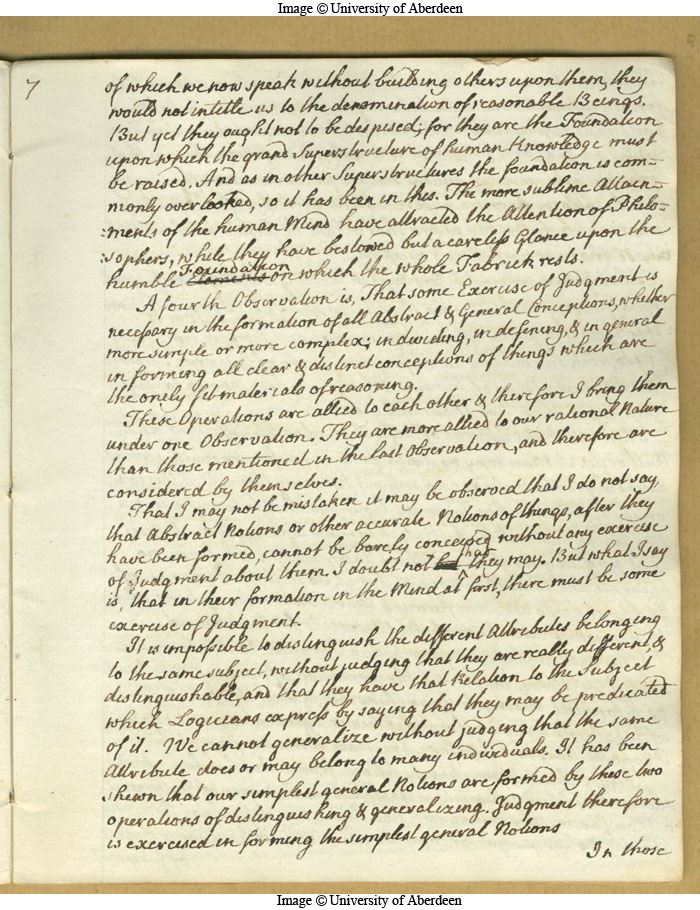 Image © University of Aberdeen
7
of which we now speak without building others upon them, they
would not intitle us to the denomination of reasonable Beings.
But yet they ought not to be despised; for they are the Foundation
upon which the grand Superstructure of human Knowledge must
be raised. And as in other Superstructures the foundation is com=
monly overlooked, so it has been in this. The more sublime Attain=
:ments of the human Mind have attracted the Attention of Philo=
:sophers, while they have bestowed but a careless Glance upon the
Foundation
humble Elements on which the whole Fabrick rests.
A fourth Observation is, That some Exercise of Judgment is
necessary in the formation of all Abstract & General Conceptions, whether
more simple or more complex; in dividing, in defining, & in general
in forming all clear & distinct conceptions of things which are
the onely fit materials of reasoning.
These Operations are allied to each other & therefore I bring them
under one Observation. They are more allied to our rational Nature
than those mentioned in the last Observation, and therefore are
considered by themselves.
That I may not be mistaken it may be observed that I do not say,
that Abstract Notions or other accurate Notions of things, after they
have been formed, cannot be barely conceived without any exercise
of Judgment about them. I doubt not they may. But what I say
is, that in their formation in the Mind at first, there must be some
exercise of Judgment.
It is impossible to distinguish the different Attributes belonging
to the same subject, without judging that they are really different, &
distinguishable, and that they have that Relation to the Subject
which Logicians express by saying that they may be predicated
of it. We cannot generalize without judging that the same
Attribute does or may belong to many individuals. It has been
shewn that our simplest general Notions are formed by these two
operations of distinguishing & generalizing. Judgment therefore
is exercised in forming the simplest general Notions
In those
Image © University of Aberdeen